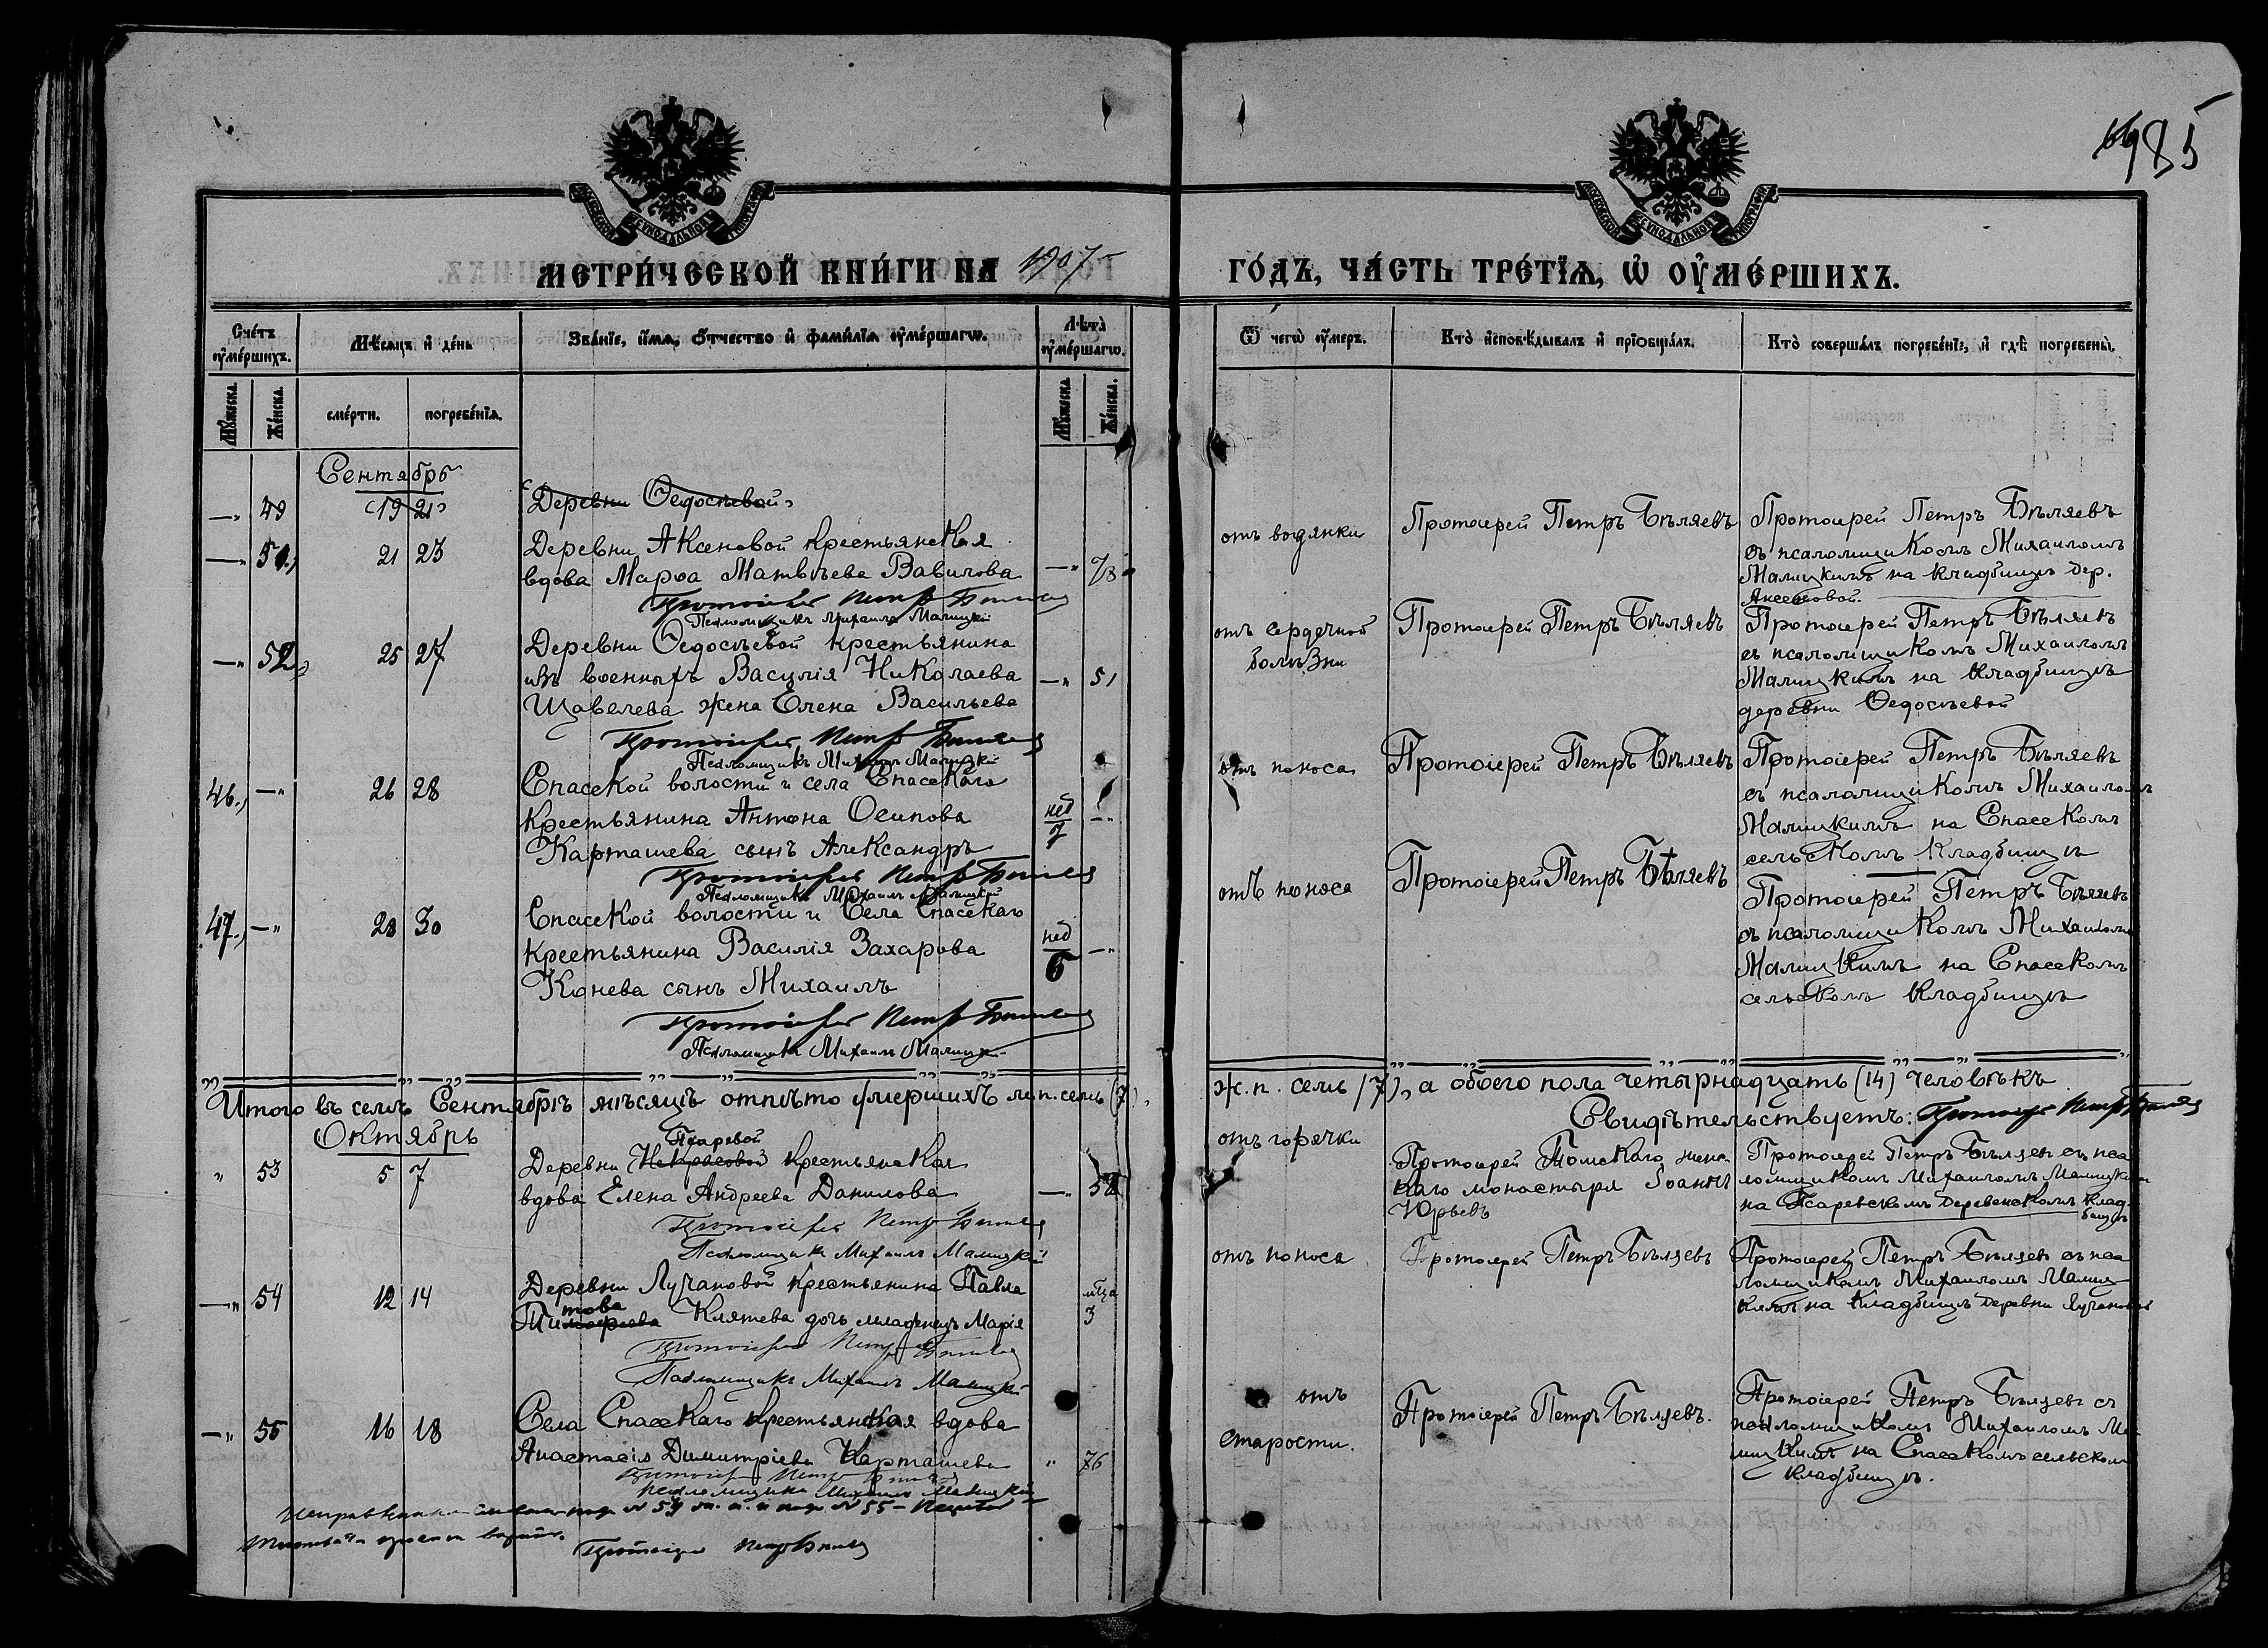 985
МОСКОВСКОЙ СѴНОДАЛЬНОЙ ТИПОГРАФІИ
МОСКОВСКОЙ СѴНОДАЛЬНОЙ ТИПОГРАФІИ
МЕТРИ́ЧЕСКОЙ КНИ́ГИ НА 1907
ГО́ДЪ, ЧА́СТЬ ТРЕ́ТЇѦ, Ѡ҆ ОУ҆МЕ́РШИХЪ.
Сче́тъ оу҆ме́ршихъ.
Мѣ́сяцъ и҆ де́нь
Зва́нїе, и҆́мѧ, ѻ҆́тчество и҆ фами́лїѧ оу҆ме́ршагѡ.
Лѣта̀ оу҆ме́ршагѡ.
Ѿ чегѡ̀ оу҆́меръ.
Кто̀ и҆сповѣ́дывалъ и҆ прїѡбща́лъ.
Кто̀ соверша́лъ погребе́нїе, и҆ гдѣ̀ погребены̀.
Мꙋ́жеска. Же́нска.
сме́рти. погребе́нїѧ.
Мꙋ́жеска. Же́нска.
Сентябрь
—„ 49 (19 21)
(Деревни Ѳедосѣевой)
—„ 51.) 21 23
Деревни Аксеновой крестьянская
вдова Марѳа Матвѣева Вавилова —„ 78
Протоіерей Петръ Бѣляевъ
Псаломщикъ Михаилъ Малицкій
отъ водянки
Протоіерей Петръ Бѣляевъ
Протоіерей Петръ Бѣляевъ
съ псаломщикомъ Михаиломъ
Малицкимъ на кладбищѣ дер.
Аксеновой.
—„ 52.) 25 27
Деревни Ѳедосѣевой крестьянина
изъ военныхъ Василія Николаева —„ 51
Щавелева жена Елена Васильева
Протоіерей Петръ Бѣляевъ
Псаломщикъ Михаилъ Малицкій
отъ сердечной
болѣзни
Протоіерей Петръ Бѣляевъ
Протоіерей Петръ Бѣляевъ
съ псаломщикомъ Михаиломъ
Малицкимъ на кладбищѣ
деревни Ѳедосѣевой
46.) —„ 26 28
Спасской волости и села Спасскаго
крестьянина Антона Осипова нед 7 —„
Карташева сынъ Александръ
Протоіерей Петръ Бѣляевъ
Псаломщикъ Михаилъ Малицкій
отъ поноса
Протоіерей Петръ Бѣляевъ
Протоіерей Петръ Бѣляевъ
съ псаломщикомъ Михаиломъ
Малицкимъ на Спасскомъ
сельскомъ кладбищѣ
47.) —„ 28 30
Спасской волости и Села Спасскаго
крестьянина Василія Захарова нед 6 —„
Конева сынъ Михаилъ
Протоіерей Петръ Бѣляевъ
Псаломщикъ Михаилъ Малицкій
отъ поноса
Протоіерей Петръ Бѣляевъ
Протоіерей Петръ Бѣляевъ
съ псаломщикомъ Михаиломъ
Малицкимъ на Спасскомъ
сельскомъ кладбищѣ
Итого въ семъ Сентябрѣ мѣсяцѣ отпѣто умершихъ м. п. семь (7),
ж. п. семь (7), а обоего пола четырнадцать (14) человѣкъ
Свидѣтельствуетъ: Протоіерей Петръ Бѣляевъ
Октябрь
„ 53 5 7
Псаревой
Деревни Некрасовой крестьянская
вдова Елена Андреева Данилова —„
Протоіерей Петръ Бѣляевъ
Псаломщикъ Михаилъ Малицкій
отъ горячки
Протоіерей Томскаго жен-
скаго монастыря Іоаннъ
Юрьевъ
Протоіерей Петръ Бѣляевъ съ пса
ломщикомъ Михаиломъ Малицкимъ
на Псаревскомъ деревенскомъ клад-
бищѣ
—„ 54 12 14
Деревни Лучановой крестьянина Павла мѣца
това
Тимоѳеева Кляпева дочь младенецъ Марія 3
Протоіерей Петръ Бѣляевъ
Псаломщикъ Михаилъ Малицкій
отъ поноса
Протоіерей Петръ Бѣляевъ
Протоіерей Петръ Бѣляевъ съ пса
ломщикомъ Михаиломъ Малиц
кимъ на кладбищѣ деревни Лучановой
—„ 55 16 18
Села Спасскаго крестьянская вдова
Анастасія Димитріева Карташева „ 76
Протоіерей Петръ Бѣляевъ
Псаломщикъ Михаилъ Малицкій
отъ
старости.
Протоіерей Петръ Бѣляевъ.
Протоіерей Петръ Бѣляевъ съ
псаломщикомъ Михаиломъ Ма-
лицкимъ на Спасскомъ сельскомъ
кладбищѣ.
№ 55 —
Протоіерей Петръ Бѣляевъ